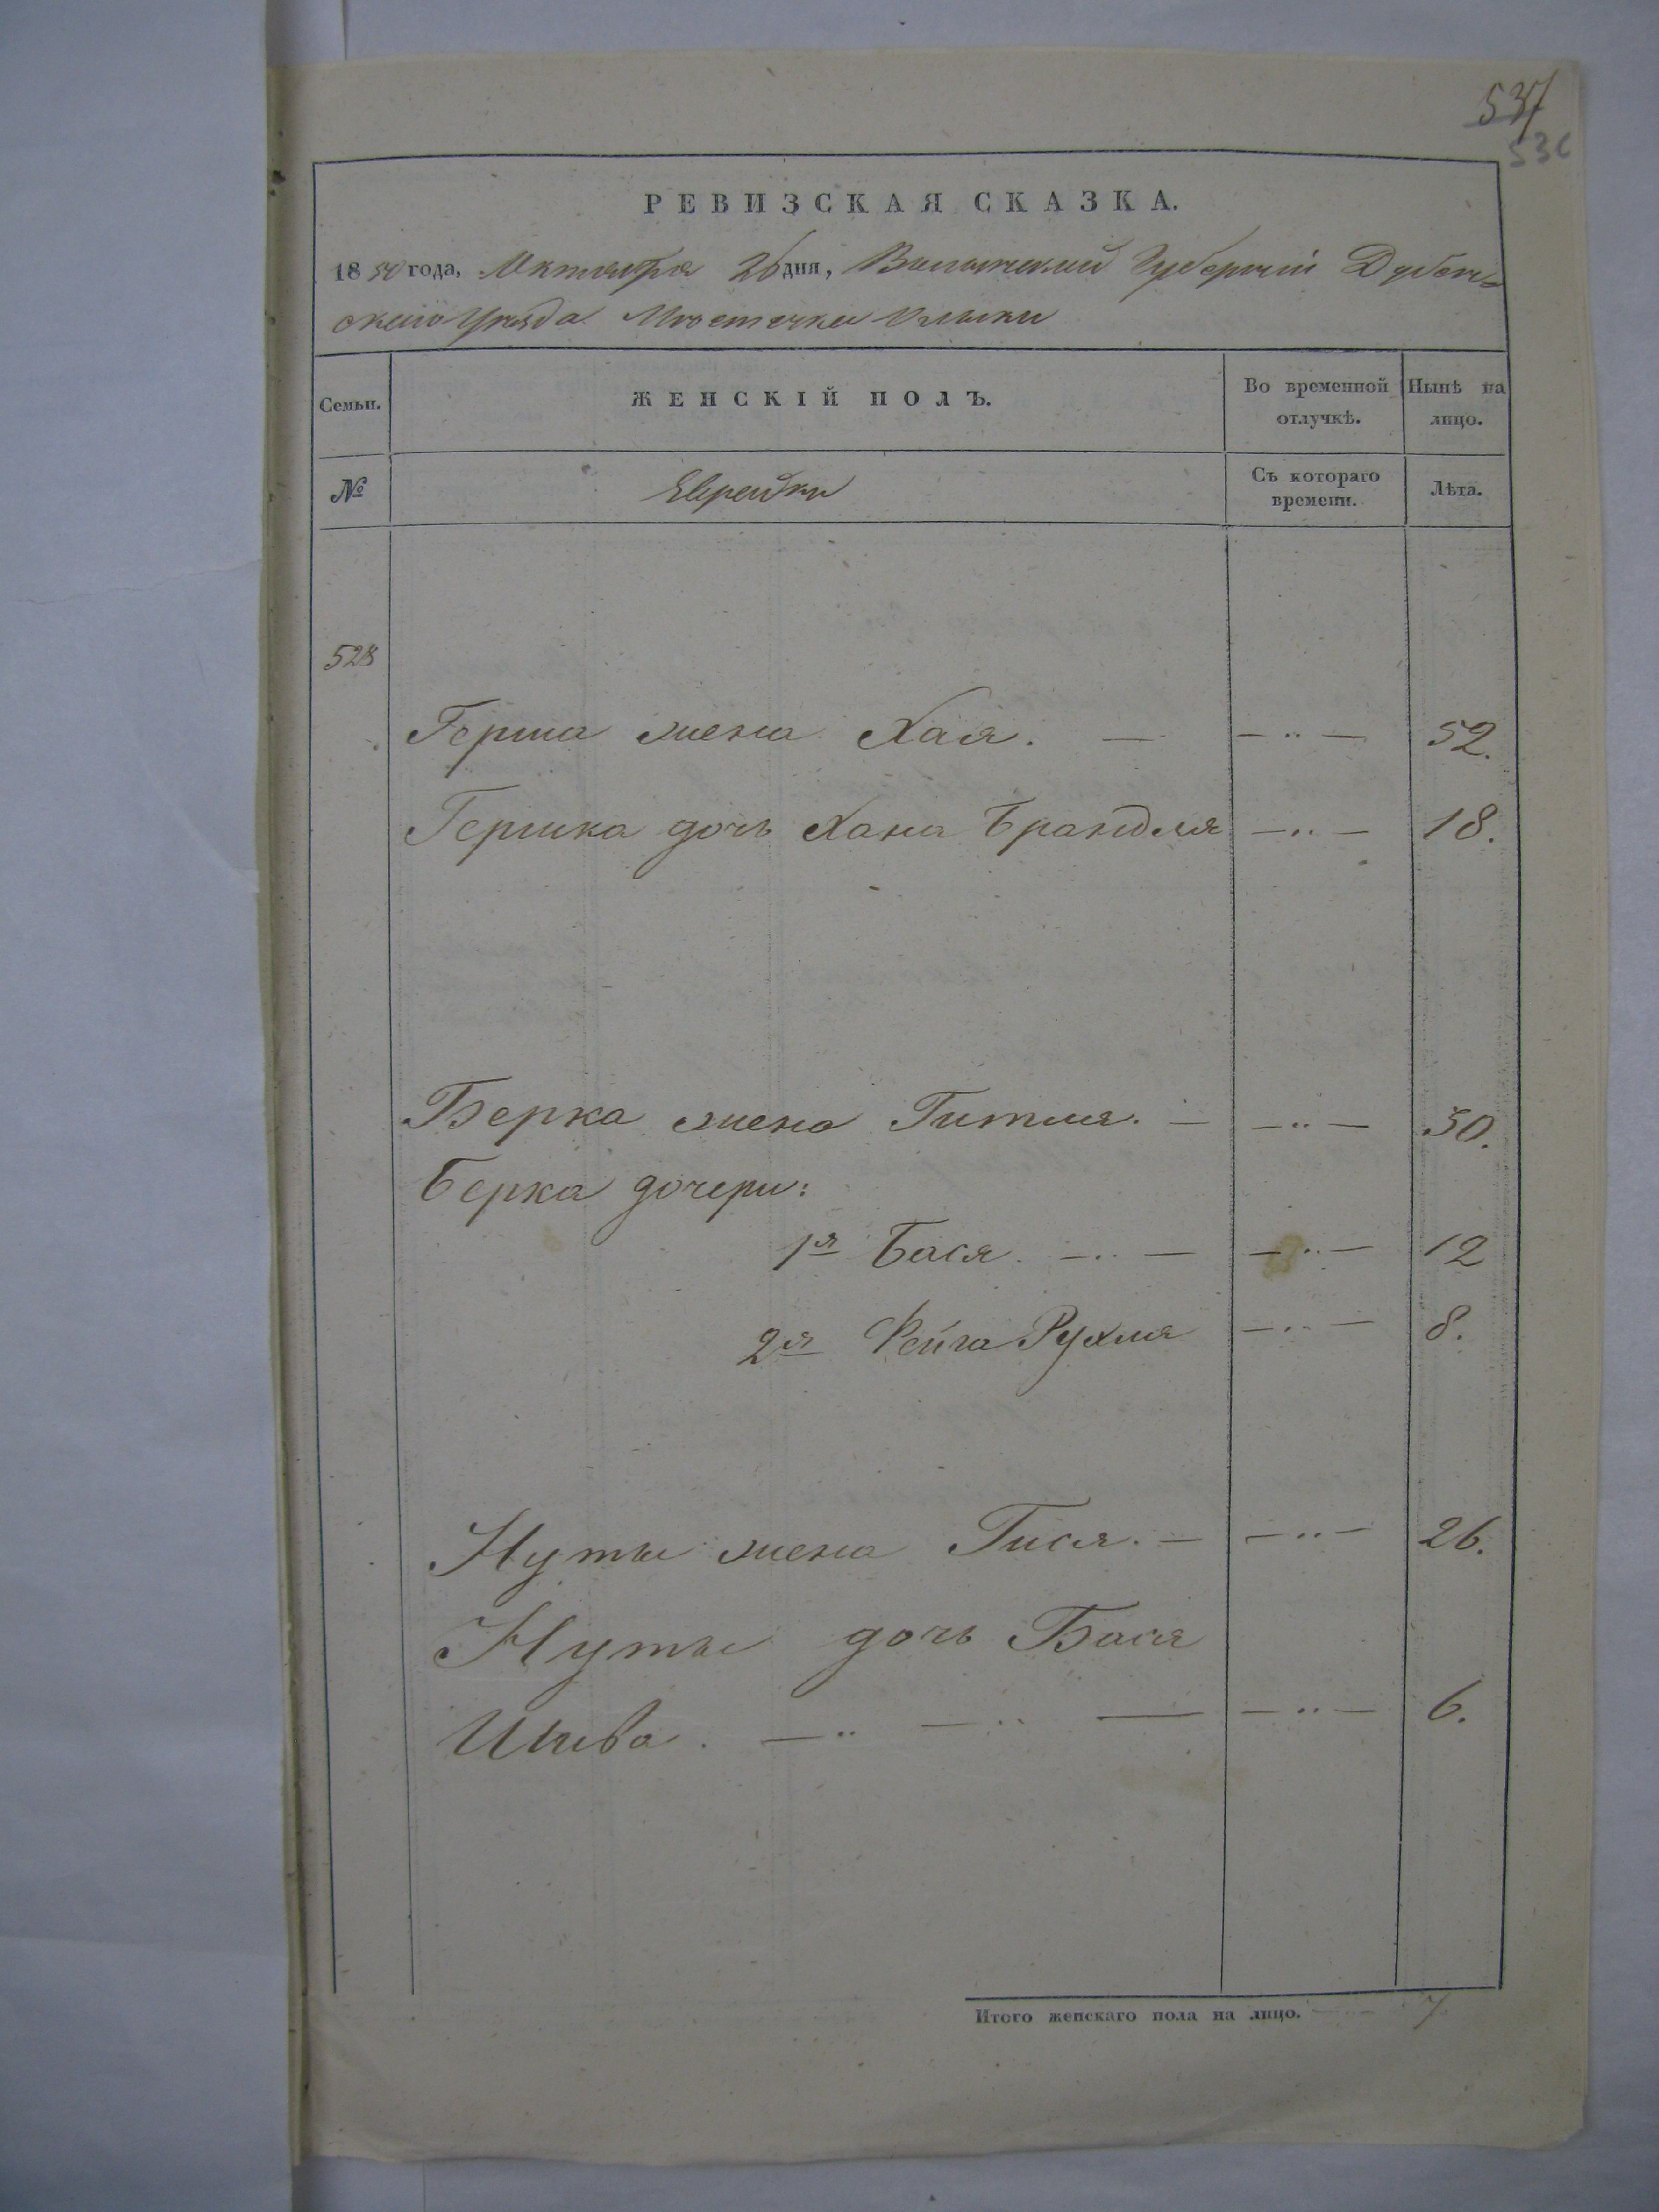 537
536
РЕВИЗСКАЯ СКАЗКА.
1850 года, Октября 26 дня, Волынской Губерніи Дубен-
скаго Уѣзда Мѣстечка Олыки
Семьи.
ЖЕНСКІЙ ПОЛЪ.
Во временной отлучкѣ.
Нынѣ на лицо.
№
Еврейки
Съ котораго времени.
Лѣта.
528
Герша жена Хая. — — „ — 52.
Гершка дочь Хана Брандля — „ — 18.
Берка жена Гитля. — — „ — 50.
Берка дочери:
1я Бася. — „ — — „ — 12
2я Фейга Рухля — „ — 8.
Нуты жена Гися. — — „ — 26.
Нуты дочь Бася
Шива. — „ — „ — — „ — 6.
Итого женскаго пола на лицо. — „ — 7